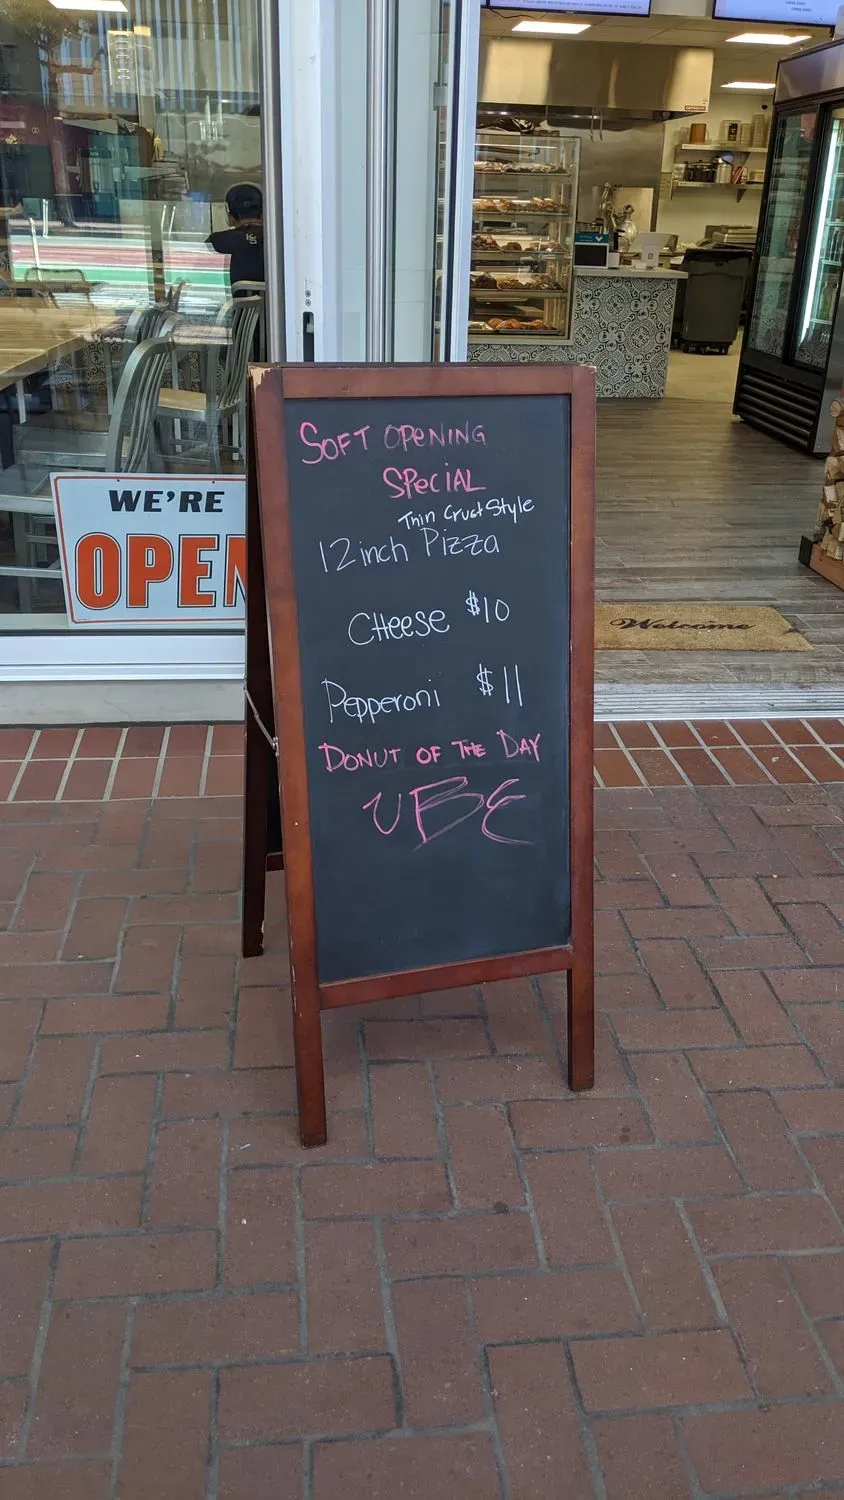 SOFT OPENING
SPECIAL
Thin Crust Style
12 inch Pizza
CHEESE $10
Pepperoni $11
DONUT OF THE DAY
UBE
WE'RE
OPEN
Welcome